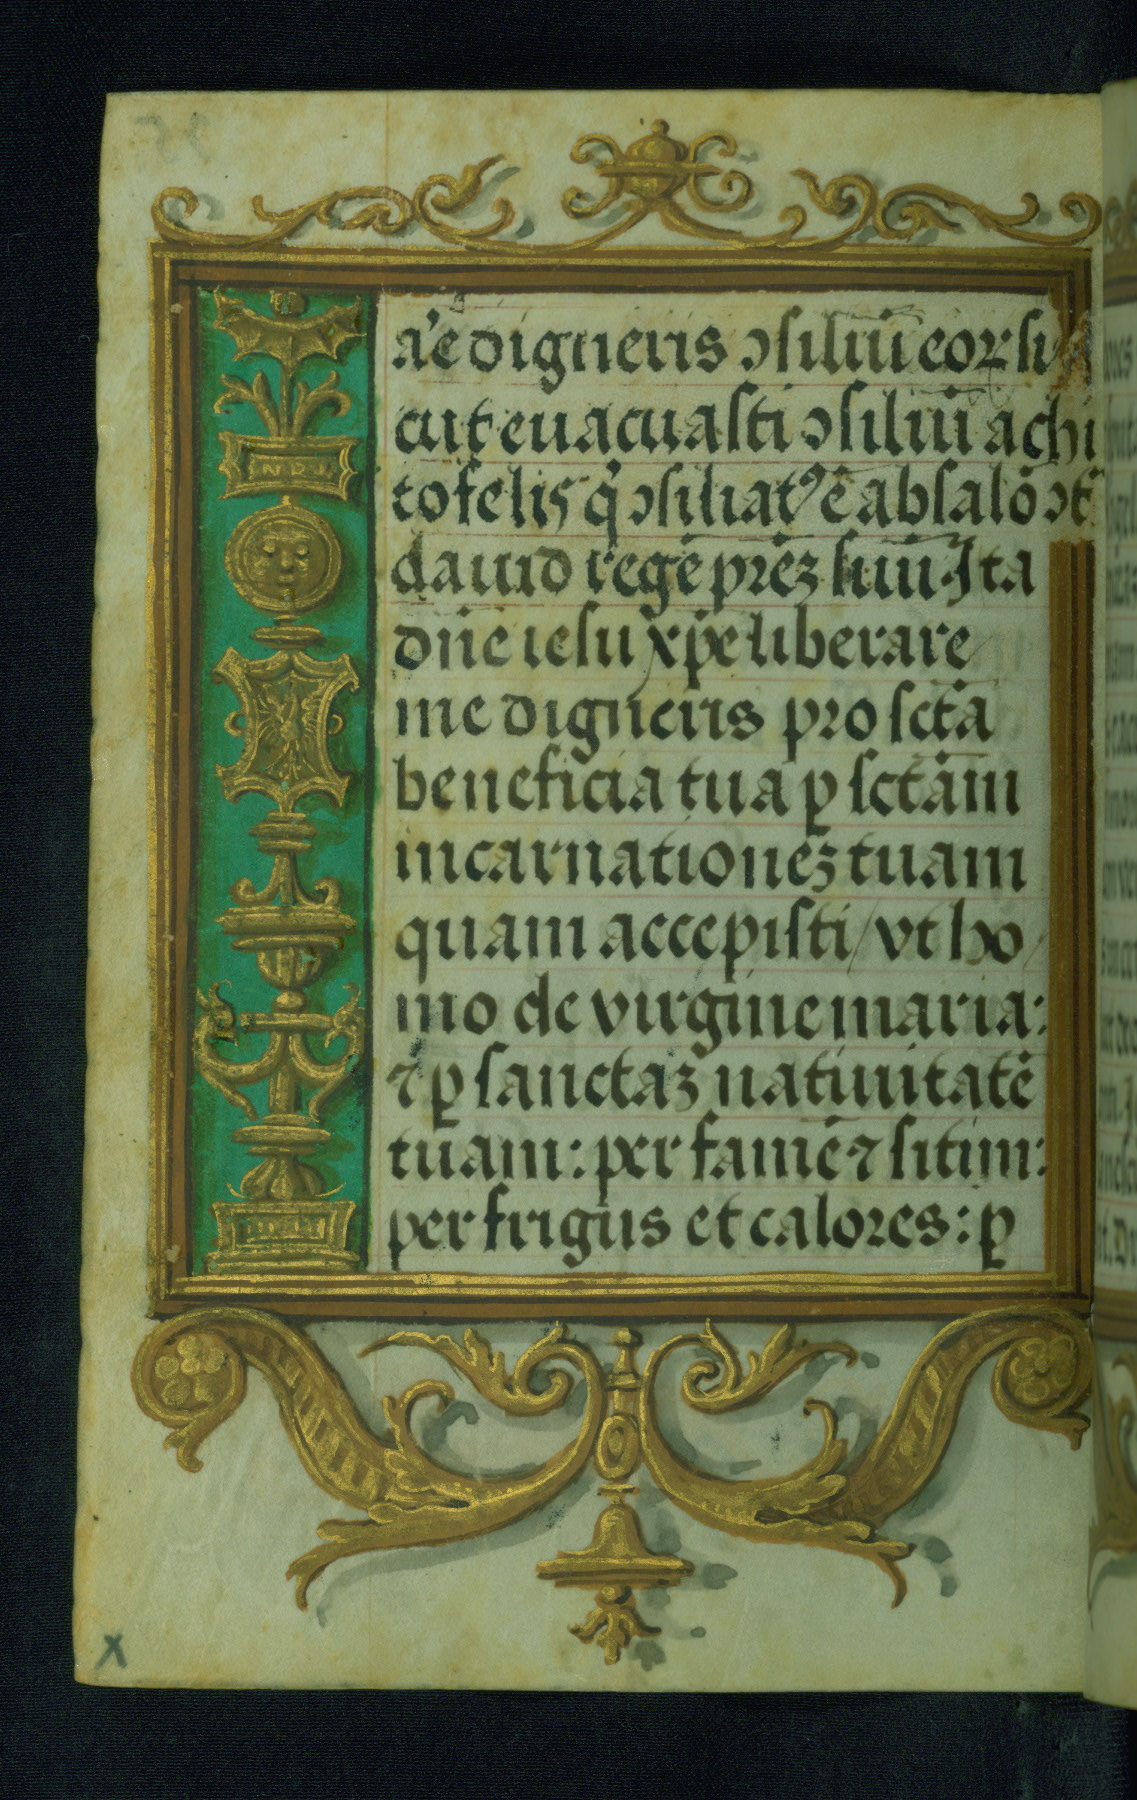 a'e digneris ↄsiliū eoꝝ si
cut euacuasti ↄsiliū achi
tofelis q̇ ↄsiliatꝰ ē absalō ↄt̄
dauid regē prēʒ suū. Ita
dn̄e iesu xp̄e liberare
me digneris pro sctā
beneficia tua ꝑ sctām
incarnationēʒ tuam
quam accepisti / vt ho /
mo de virgine maria:
⁊ ꝑ sanctaʒ natiuitatē
tuam: per famē ⁊ sitim:
per frigus et calores: ꝑ
X